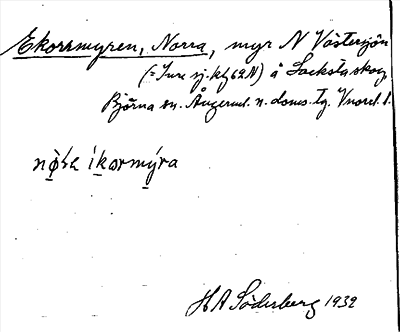 Ekorrmyren, Norra, myr N Västersjön
(= Inre sj. kbl 62 N) å Locksta skog,
Björna sn. Ångerml. n. doms. tg. Vnorrl. l.
nø̀ʂa íkormýra
H A Söderberg 1932